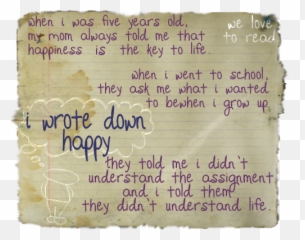 when i was five years old,
my mom always told me that
happiness is the key to life.
we love
to read
when i went to school,
they ask me what i wanted
to bewhen i grow up.
i wrote down
happy
they told me i didn't
understand the assignment
and i told them
they didn't understand life.